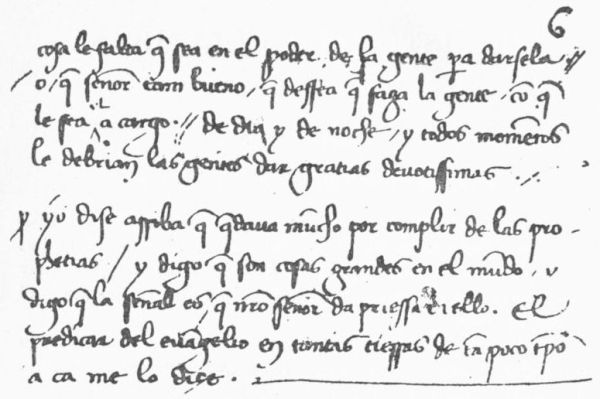 6
cosa le falta q̃ sea en el poder de la gente pa darsela //
/ o, q̃ señor tam bueno, q̃ dessea q̃ faga la gente cõ q̃
le sea a el cargo. // de dia y de noche, y todos momẽtos
le debrian las gentes dar gratias devotissimas.
yo dise arriba q̃ q̃dava mũcho por complir de las pro-
phetias / y digo q̃ son cosas grandes en el mũdo, y
digo q̃ la señal es q̃ nr̃o señor da priessa en ello. El
predicar del evãgelio en tantas tierras de tã poco tp̃o
a ca me lo dice.